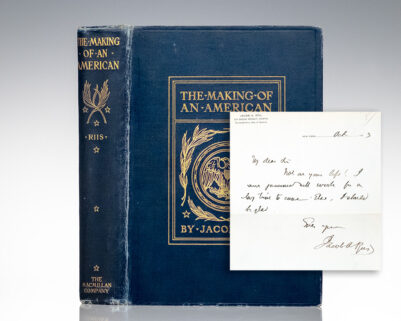 THE·MAKING
OF·AN·
AMERICAN
·RIIS·
THE
MACMILLAN
COMPANY
THE·MAKING·OF
AN·AMERICAN
BY·JACO
JACOB A. RIIS,
NEW YORK, Oct. 3
My dear Sir
Not on your life! I
am
long time to come. Else, I should
be glad
Yours
Jacob A. Riis